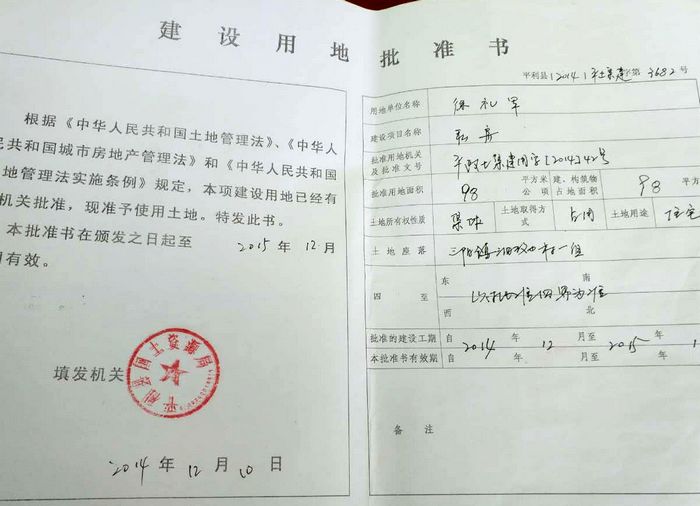 建设用地批准书
根据《中华人民共和国土地管理法》、《中华人
民共和国城市房地产管理法》和《中华人民共和国
地管理法实施条例》规定，本项建设用地已经有
机关批准，现准予使用土地。特发此书。
本批准书在颁发之日起至 2015 年 12 月
有效。
填发机关
平利县国土资源局
2014 年 12 月 10 日
平利县(2014)平土集建字第3682号
用地单位名称 徐礼军
建设项目名称
批准用地机关及批准文号 平政土集建国字[2014]42号
批准用地面积 98 平方米 公顷 建、构筑物占地面积 98 平方
土地所有权性质 集体 土地取得方式 占用 土地用途 住宅
土地座落 三阳镇 村一组
四至 东 南 西 北 以 批准四界为准
批准的建设工期 自 2014 年 12 月至 2015 年 1
本批准书有效期 自 年 月至 年
备注